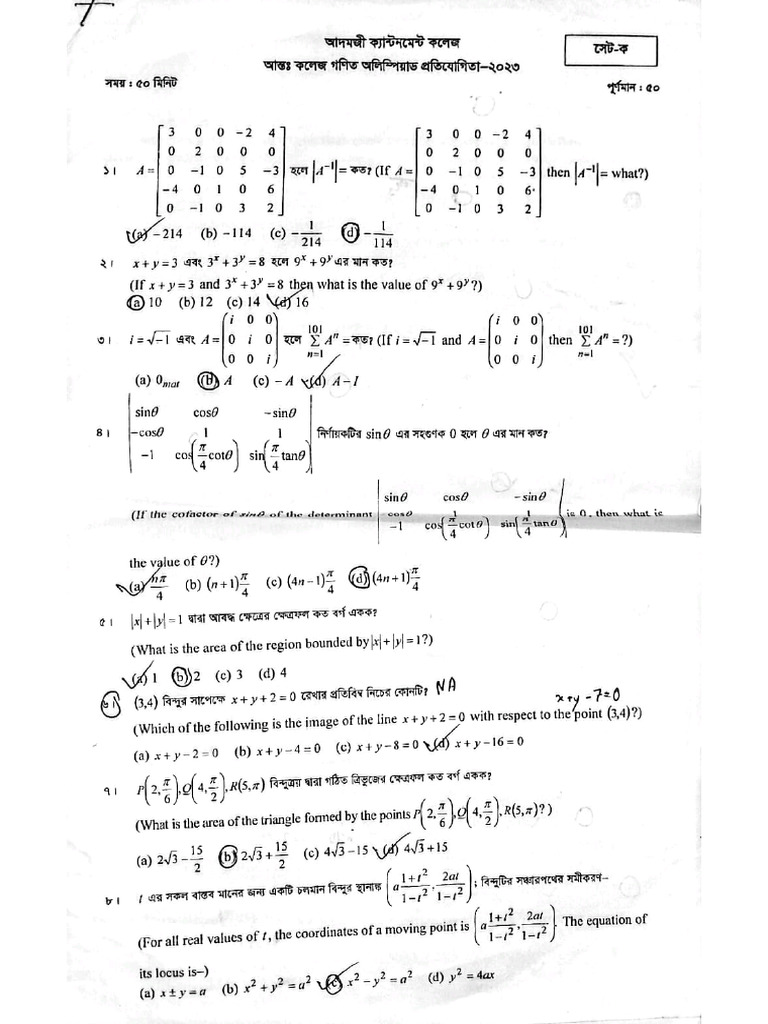 আদমজী ক্যান্টনমেন্ট কলেজ
সেট-ক
আন্তঃ কলেজ গণিত অলিম্পিয়াড প্রতিযোগিতা–২০২৩
সময় : ৫০ মিনিট
পূর্ণমান : ৫০
১। A = [3 0 0 −2 4; 0 2 0 0 0; 0 −1 0 5 −3; −4 0 1 0 6; 0 −1 0 3 2] হলে |A⁻¹| = কত? (If A = [3 0 0 −2 4; 0 2 0 0 0; 0 −1 0 5 −3; −4 0 1 0 6; 0 −1 0 3 2] then |A⁻¹| = what?)
(a) −214 (b) −114 (c) −1/214 (d) −1/114
২। x + y = 3 এবং 3ˣ + 3ʸ = 8 হলে 9ˣ + 9ʸ এর মান কত?
(If x + y = 3 and 3ˣ + 3ʸ = 8 then what is the value of 9ˣ + 9ʸ?)
(a) 10 (b) 12 (c) 14 (d) 16
৩। i = √−1 এবং A = (i 0 0; 0 i 0; 0 0 i) হলে 101 Σ n=1 Aⁿ = কত? (If i = √−1 and A = (i 0 0; 0 i 0; 0 0 i) then 101 Σ n=1 Aⁿ = ?)
(a) 0mat (b) A (c) − A (d) A − I
৪। |sinθ cosθ −sinθ; −cosθ 1 1; −1 cos(π/4 cotθ) sin(π/4 tanθ)| নির্ণায়কটির sinθ এর সহগুণক 0 হলে θ এর মান কত?
(If the cofactor of sinθ of the determinant |sinθ cosθ −sinθ; cosθ 1 1; −1 cos(π/4 cotθ) sin(π/4 tanθ)| is 0, then what is
the value of θ?)
(a) nπ/4 (b) (n + 1)π/4 (c) (4n − 1)π/4 (d) (4n + 1)π/4
৫। |x| + |y| = 1 দ্বারা আবদ্ধ ক্ষেত্রের ক্ষেত্রফল কত বর্গ একক?
(What is the area of the region bounded by |x| + |y| = 1?)
(a) 1 (b) 2 (c) 3 (d) 4
৬। (3,4) বিন্দুর সাপেক্ষে x + y + 2 = 0 রেখার প্রতিবিম্ব নিচের কোনটি? NA
x+y−7=0
(Which of the following is the image of the line x + y + 2 = 0 with respect to the point (3,4)?)
(a) x + y − 2 = 0 (b) x + y − 4 = 0 (c) x + y − 8 = 0 (d) x + y − 16 = 0
৭। P(2, π/6), Q(4, π/2), R(5, π) বিন্দুত্রয় দ্বারা গঠিত ত্রিভুজের ক্ষেত্রফল কত বর্গ একক?
(What is the area of the triangle formed by the points P(2, π/6), Q(4, π/2), R(5, π)?)
(a) 2√3 − 15/2 (b) 2√3 + 15/2 (c) 4√3 − 15 (d) 4√3 + 15
৮। t এর সকল বাস্তব মানের জন্য একটি চলমান বিন্দুর স্থানাঙ্ক (a 1+t²/1−t², 2at/1−t²); বিন্দুটির সঞ্চারপথের সমীকরণ–
(For all real values of t, the coordinates of a moving point is (a 1+t²/1−t², 2at/1−t²). The equation of
its locus is–)
(a) x ± y = a (b) x² + y² = a² (c) x² − y² = a² (d) y² = 4ax